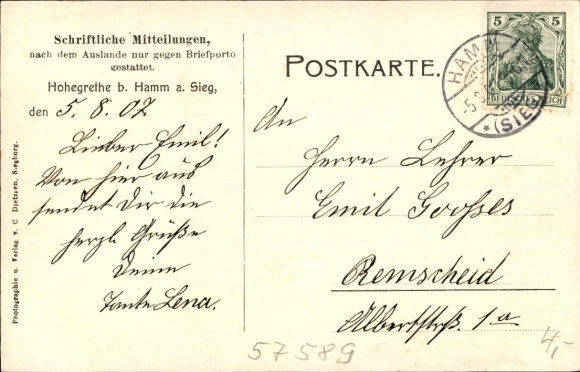 Schriftliche Mitteilungen,
nach dem Auslande nur gegen Briefporto
gestattet.
Hohegrethe b. Hamm a. Sieg,
den 5.8.07
Lieber Emil!
Von hier aus
sendet Dir die
herzl. Grüße
Deine
Tante Lena.
Photographie u. Verlag v. C Siegburg.
POSTKARTE.
5 5
DEUTSCHES REICH
HAMM
(SIEG)
An
Herrn Lehrer
Emil Goosses
Remscheid
Albertstrß. 1a
57589
4,-